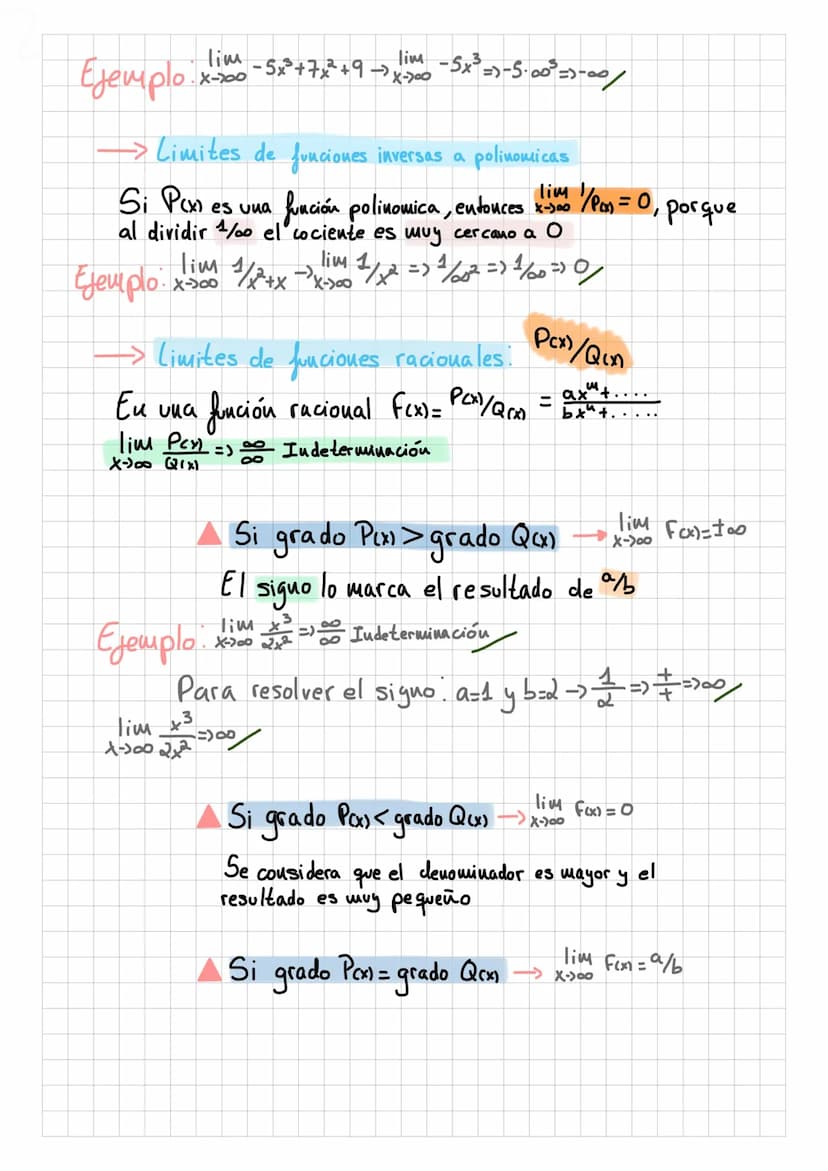 Ejemplo: lim x->∞ -5x³+7x²+9 → lim x->∞ -5x³ => -5·∞³ => -∞
→ Limites de funciones inversas a polinomicas
Si P(x) es una función polinomica, entonces lim x->∞ 1/P(x) = 0, porque
al dividir 1/∞ el cociente es muy cercano a 0
Ejemplo: lim x->∞ 1/x²+x → lim x->∞ 1/x² => 1/∞² => 1/∞ => 0
→ Limites de funciones racionales: P(x)/Q(x)
En una función racional F(x)= P(x)/Q(x) = axᵐ+..../bxⁿ+.....
lim x->∞ P(x)/Q(x) => ∞/∞ Indeterminación
▲ Si grado P(x) > grado Q(x) → lim x->∞ F(x)=±∞
El signo lo marca el resultado de a/b
Ejemplo: lim x->∞ x³/2x² => ∞/∞ Indeterminación
Para resolver el signo: a=1 y b=2 → 1/2 => +/+ => ∞
lim x->∞ x³/2x² => ∞
▲ Si grado P(x) < grado Q(x) → lim x->∞ F(x) = 0
Se considera que el denominador es mayor y el
resultado es muy pequeño
▲ Si grado P(x) = grado Q(x) → lim x->∞ F(x) = a/b